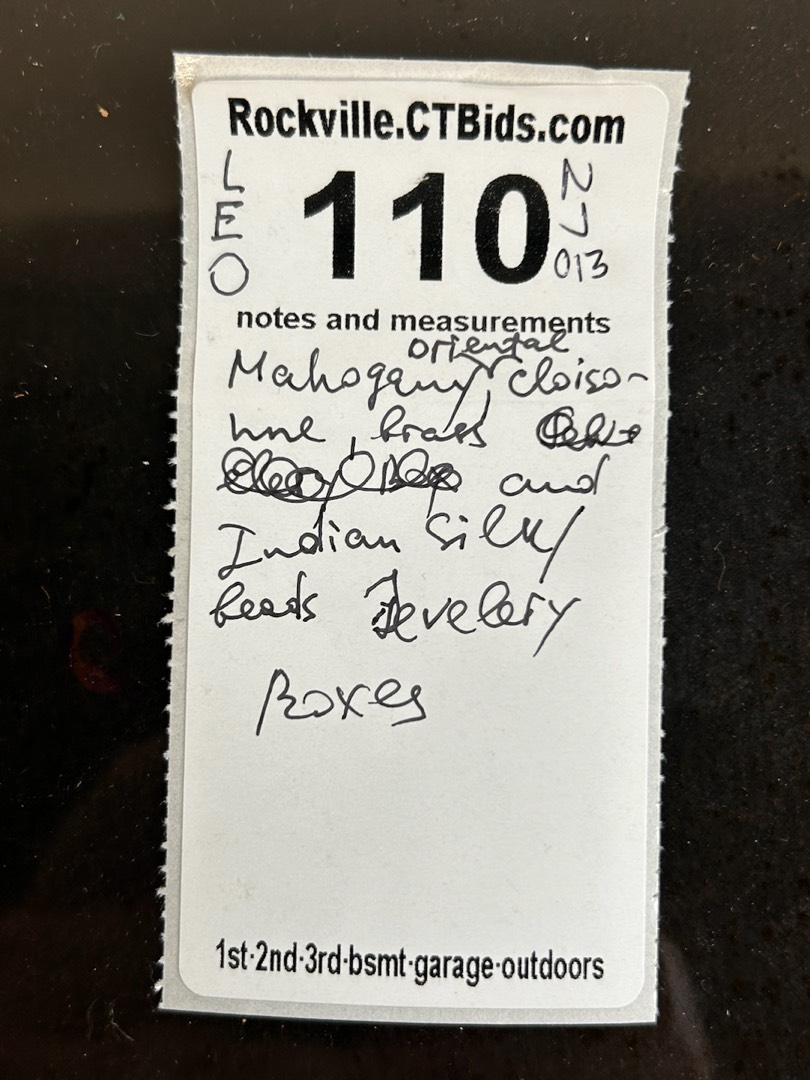 Rockville.CTBids.com
LEO
110
013
notes and measurements
oriental
Mahogany, cloiso-
nne, brass
and
Indian Silk/
beads Jevelery
Boxes
1st·2nd·3rd·bsmt·garage·outdoors